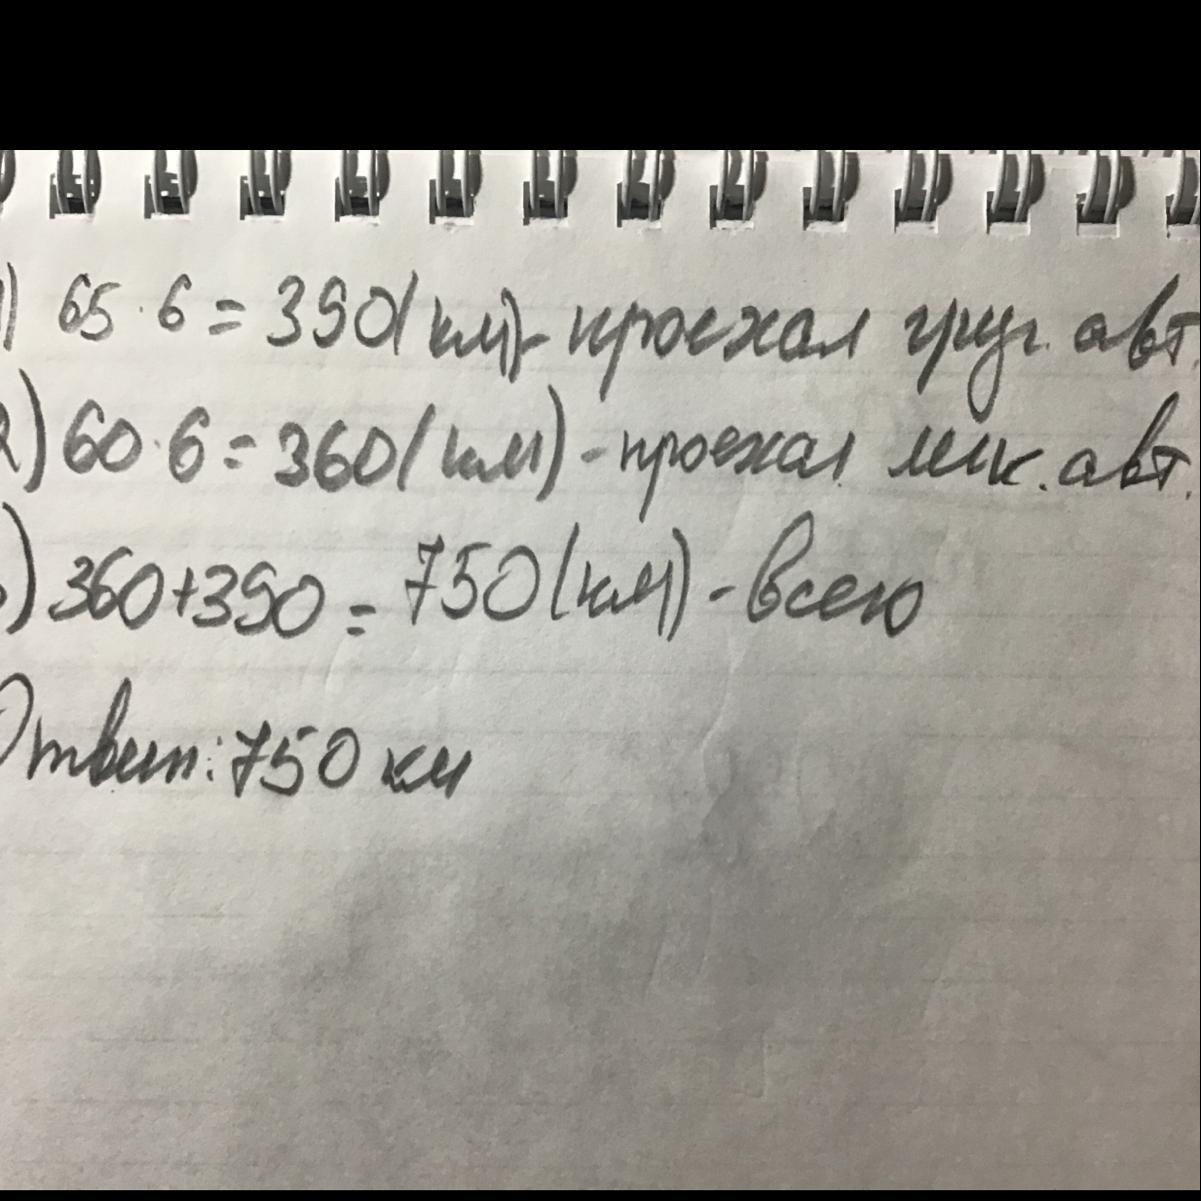 1) 65 · 6 = 390 (км) - проехал груз. авт.
2) 60 · 6 = 360 (км) - проехал лик. авт.
3) 360 + 390 = 750 (км) - всего
Ответ: 750 км